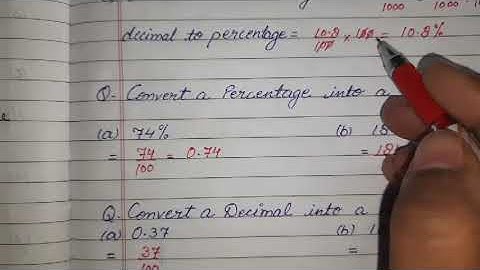 1000 1000
decimal to percentage = 10.8/100 × 100 = 10.8%
Q. Convert a Percentage into a
(a) 74% (b) 18
= 74/100 = 0.74 = 18
Q. Convert a Decimal into a
(a) 0.37 (b) 1
= 37/100 =